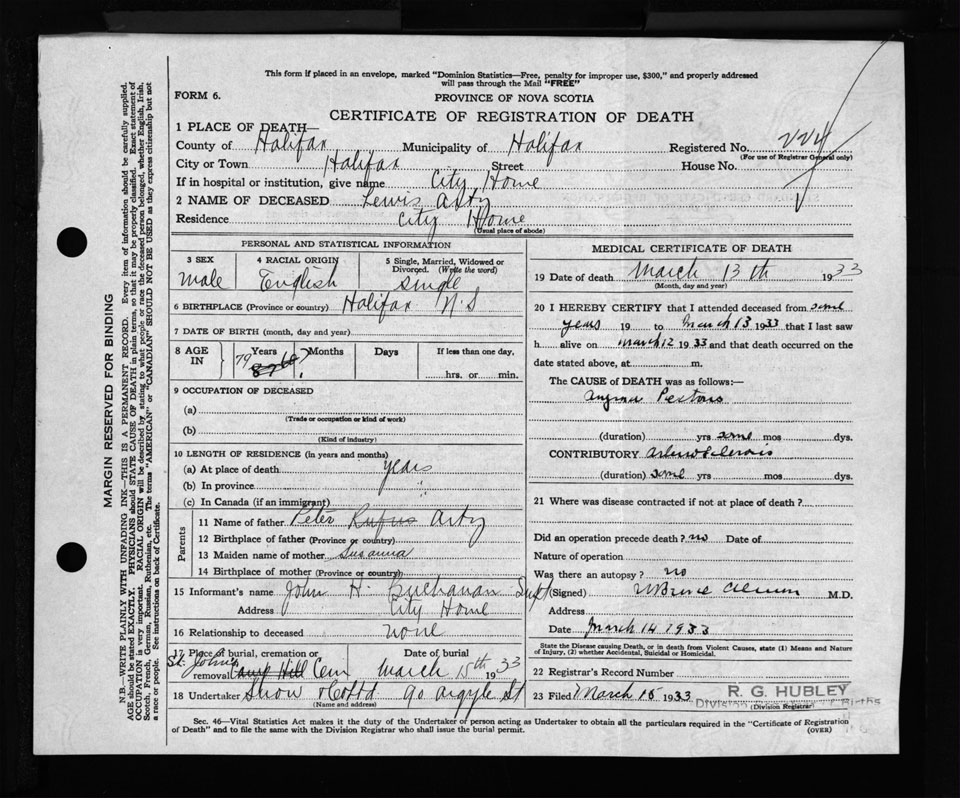 This form if placed in an envelope, marked "Dominion Statistics—Free, penalty for improper use, $300," and properly addressed
will pass through the Mail "FREE"
FORM 6.
PROVINCE OF NOVA SCOTIA
CERTIFICATE OF REGISTRATION OF DEATH
1 PLACE OF DEATH—
County of Halifax Municipality of Halifax Registered No. 224
(For use of Registrar General only)
City or Town Halifax Street House No.
If in hospital or institution, give name City Home
2 NAME OF DECEASED Lewis Arty
Residence City Home
(Usual place of abode)
PERSONAL AND STATISTICAL INFORMATION
3 SEX
male
4 RACIAL ORIGIN
English
5 Single, Married, Widowed or
Divorced. (Write the word)
Single
6 BIRTHPLACE (Province or country) Halifax N.S
7 DATE OF BIRTH (month, day and year)
8 AGE
IN
Years
79
Months
Days
If less than one day,
hrs. or min.
9 OCCUPATION OF DECEASED
(a)
(Trade or occupation or kind of work)
(b)
(Kind of industry)
10 LENGTH OF RESIDENCE (in years and months)
(a) At place of death years
(b) In province "
(c) In Canada (if an immigrant)
Parents
11 Name of father Peter Rufus Arty
12 Birthplace of father (Province or country)
13 Maiden name of mother Susanna
14 Birthplace of mother (Province or country)
15 Informant's name John H. Buchanan Supt
Address City Home
16 Relationship to deceased none
17 Place of burial, cremation or
removal St. John's Camp Hill Cem
Date of burial
March 15th 1933
18 Undertaker Snow & Co Ltd 90 Argyle St
(Name and address)
MEDICAL CERTIFICATE OF DEATH
19 Date of death March 13th 1933
(Month, day and year)
20 I HEREBY CERTIFY that I attended deceased from some
years 19 to March 13 1933 that I last saw
h alive on March 12 1933 and that death occurred on the
date stated above, at m.
The CAUSE of DEATH was as follows:—
Angina Pectoris
(duration) yrs some mos dys.
CONTRIBUTORY Arteriosclerosis
(duration) some yrs mos dys.
21 Where was disease contracted if not at place of death?
Did an operation precede death? no Date of
Nature of operation
Was there an autopsy? no
(Signed) M.D.
Address
Date March 14 1933
State the Disease causing Death, or in death from Violent Causes, state (1) Means and Nature
of Injury, (2) whether Accidental, Suicidal or Homicidal.
22 Registrar's Record Number
23 Filed March 15 1933 R. G. HUBLEY
(Division Registrar)
Sec. 46—Vital Statistics Act makes it the duty of the Undertaker or person acting as Undertaker to obtain all the particulars required in the "Certificate of Registration
of Death" and to file the same with the Division Registrar who shall issue the burial permit.
(OVER)
MARGIN RESERVED FOR BINDING
N.B.—WRITE PLAINLY WITH UNFADING INK—THIS IS A PERMANENT RECORD. Every item of information should be carefully supplied.
AGE should be stated EXACTLY. PHYSICIANS should STATE CAUSE OF DEATH in plain terms, so that it may be properly classified. Exact statement of
OCCUPATION is very important. RACIAL ORIGIN will be described by stating to what people or race the deceased person belonged, whether English, Irish,
Scotch, French, German, Russian, Ruthenian, etc. The terms "AMERICAN" or "CANADIAN" SHOULD NOT BE USED as they express citizenship but not
a race or people. See instructions on back of Certificate.